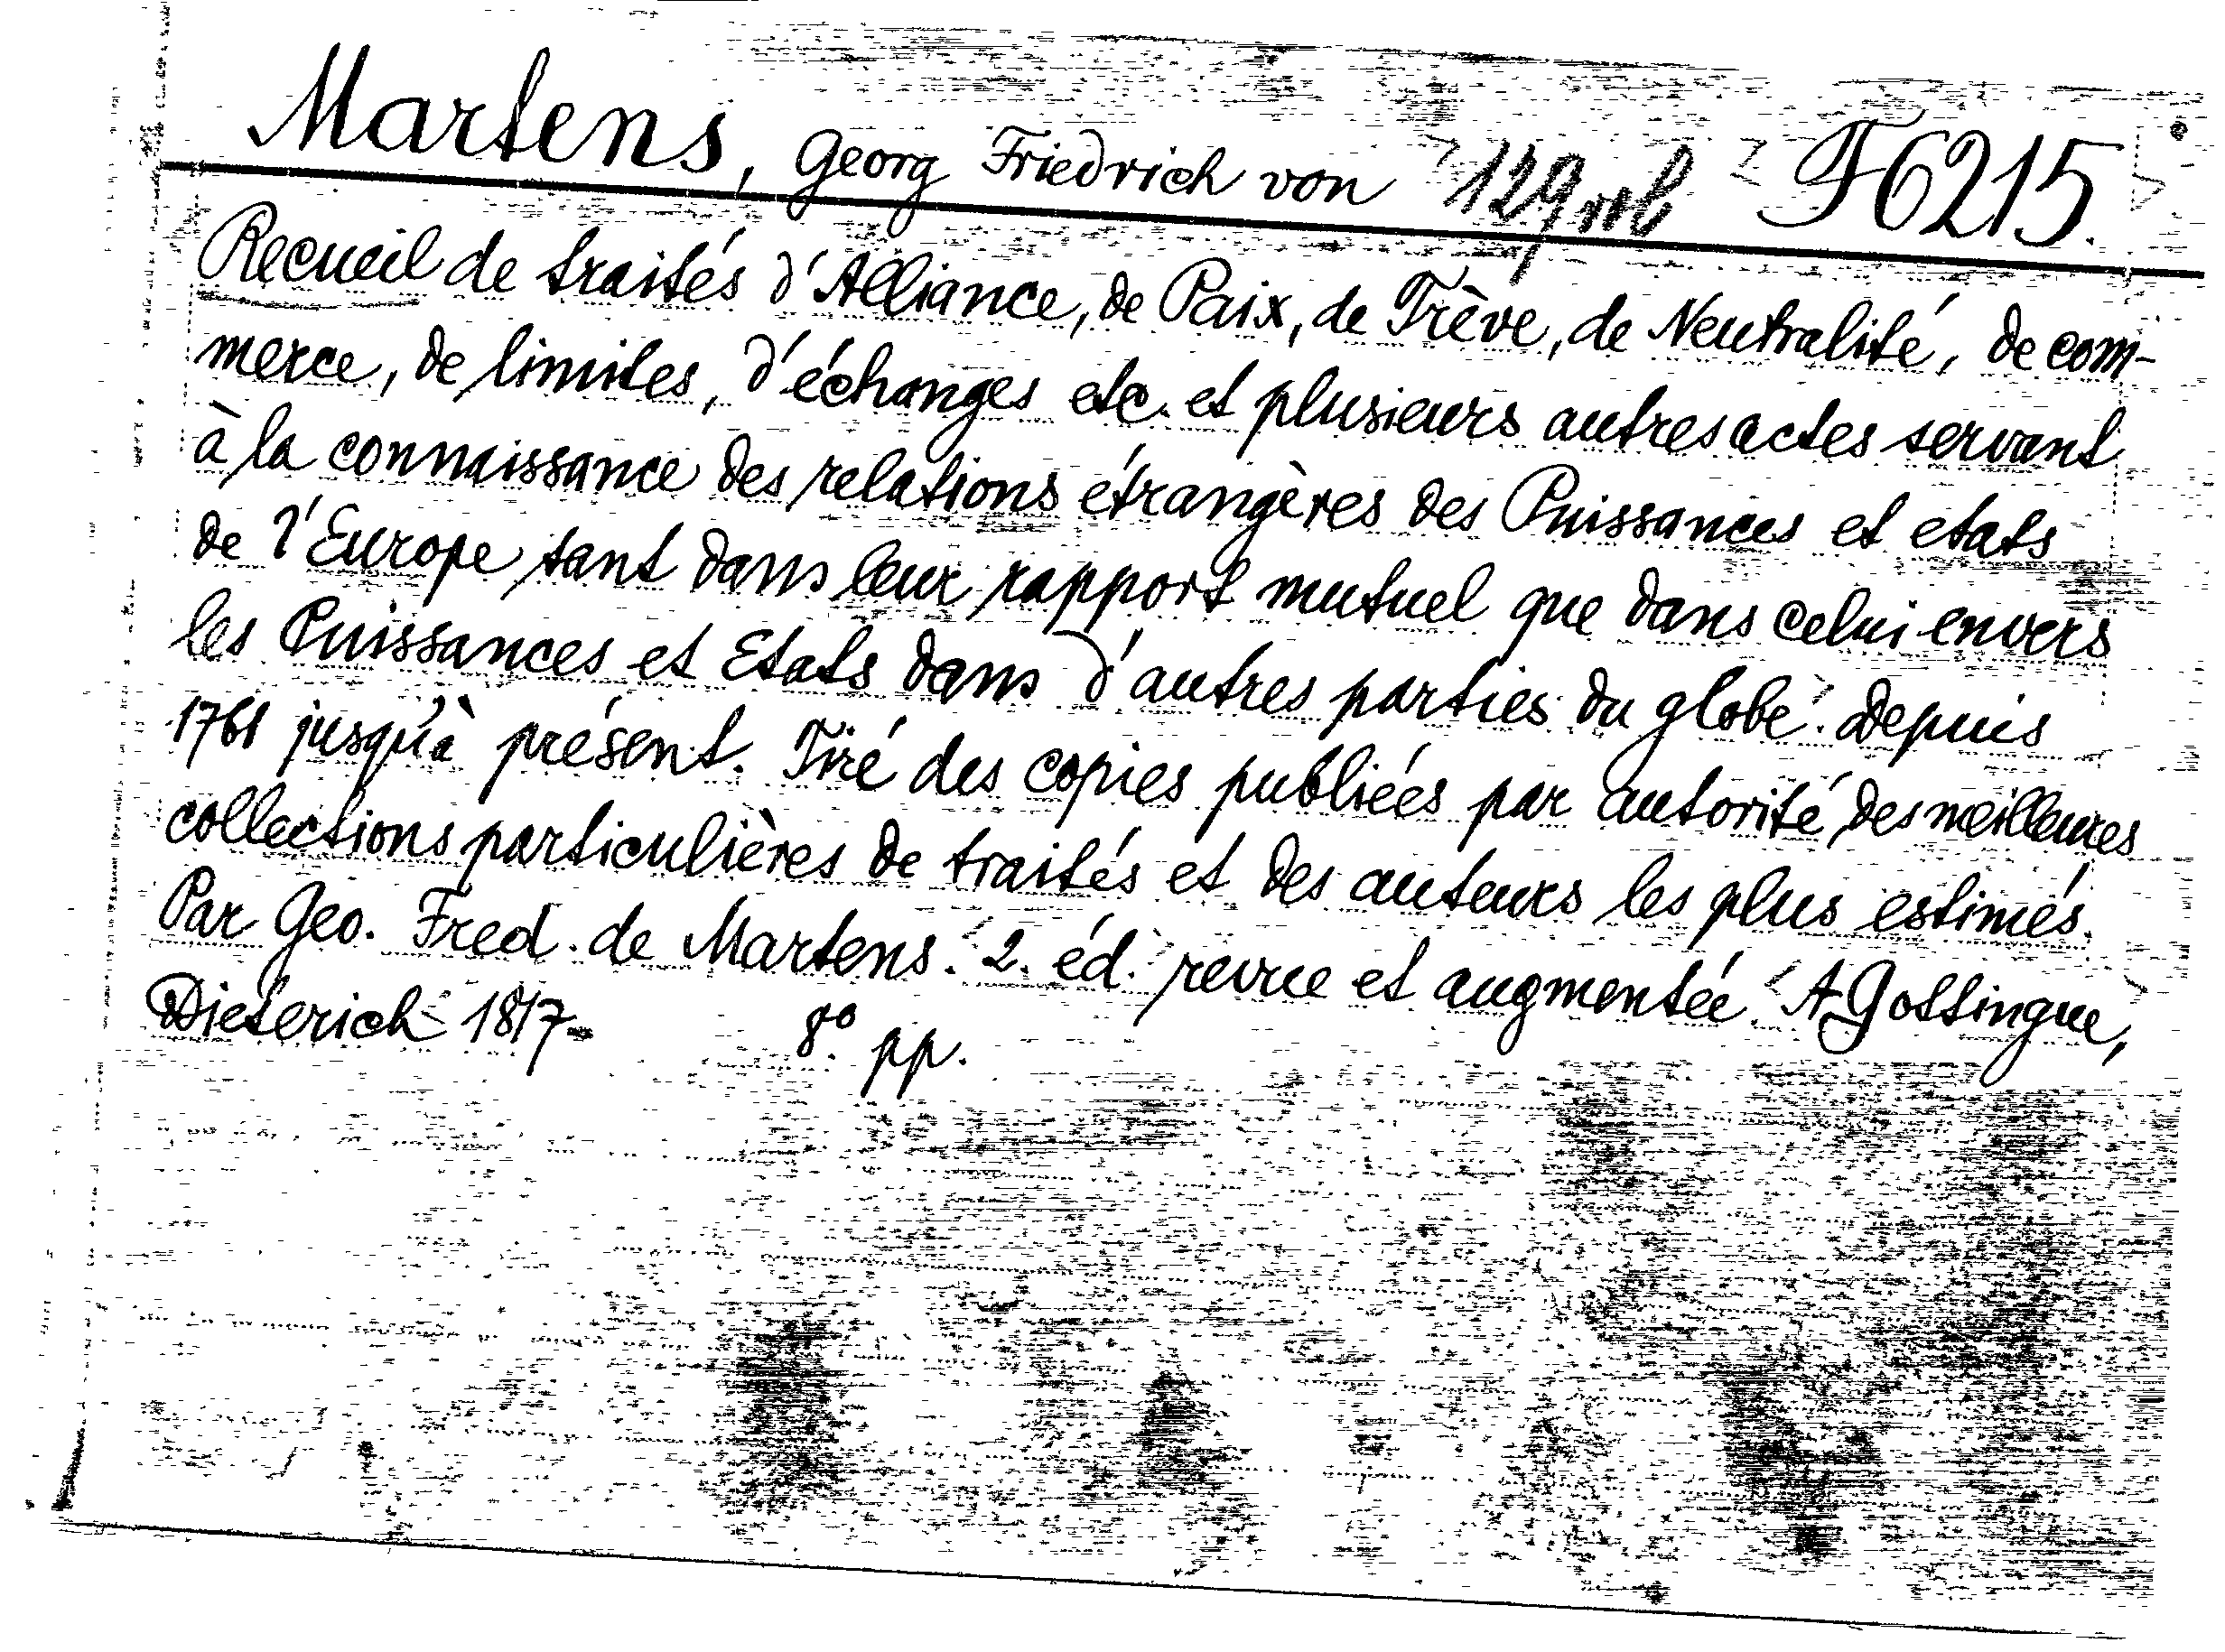 Martens, Georg Friedrich von F6215.
Recueil de traités d'Alliance, de Paix, de Trève, de Neutralité, de com-
merce, de limites, d'échanges etc. et plusieurs autres actes servant
à la connaissance des relations étrangères des Puissances et etats
de l'Europe tant dans leur rapport mutuel que dans celui envers
les Puissances et Etats dans d'autres parties du globe. Depuis
1761 jusqu'à présent. Tiré des copies publiées par autorité, des meilleures
collections particulières de traités et des auteurs les plus estimés.
Par Geo. Fred. de Martens. 2. éd. revue et augmentée A Gottingue,
Dieterich 1817- 8.° pp.